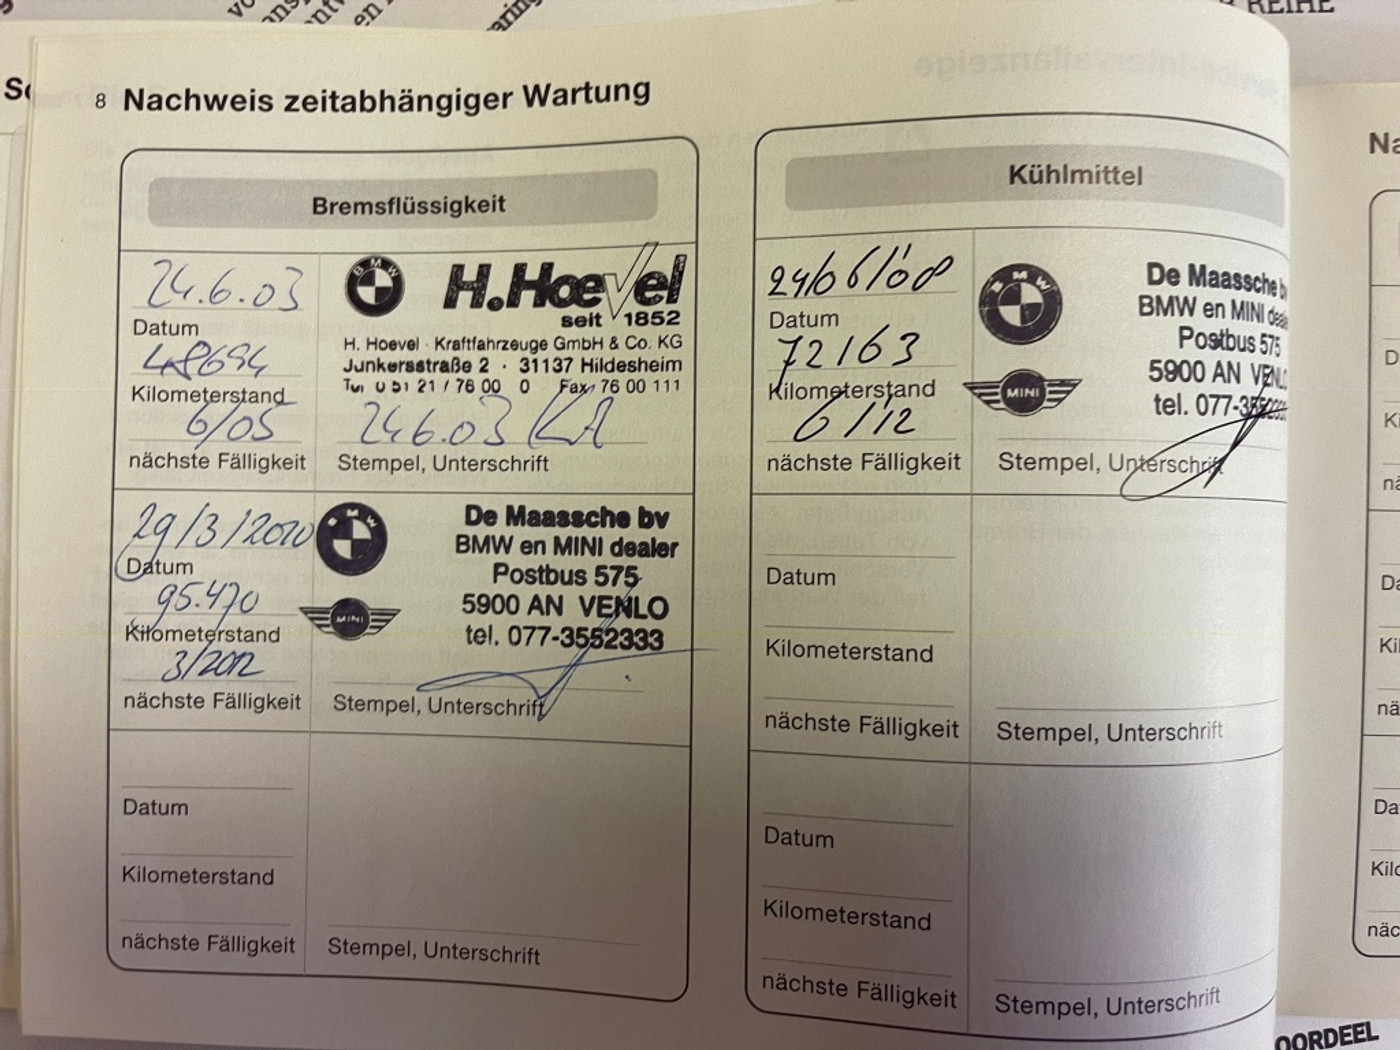 REIHE
8 Nachweis zeitabhängiger Wartung
Bremsflüssigkeit
24.6.03
Datum
48694
Kilometerstand
6/05
nächste Fälligkeit
BMW
H.Hoevel
seit 1852
H. Hoevel · Kraftfahrzeuge GmbH & Co. KG
Junkersstraße 2 · 31137 Hildesheim
Tel 0 51 21 / 76 00 0 Fax 76 00 111
24.6.03
Stempel, Unterschrift
29/3/2010
Datum
95.470
Kilometerstand
3/2012
nächste Fälligkeit
BMW
MINI
De Maassche bv
BMW en MINI dealer
Postbus 575
5900 AN VENLO
tel. 077-3552333
Stempel, Unterschrift
Datum
Kilometerstand
nächste Fälligkeit
Stempel, Unterschrift
Kühlmittel
24/06/'08
Datum
72163
Kilometerstand
6/'12
nächste Fälligkeit
BMW
MINI
De Maassche b
BMW en MINI deale
Postbus 575
5900 AN VENL
tel. 077-3552333
Stempel, Unterschrift
Datum
Kilometerstand
nächste Fälligkeit
Stempel, Unterschrift
Datum
Kilometerstand
nächste Fälligkeit
Stempel, Unterschrift
Na
D
Ki
nä
Da
Kil
nä
Da
Kilo
näc
OORDEEL